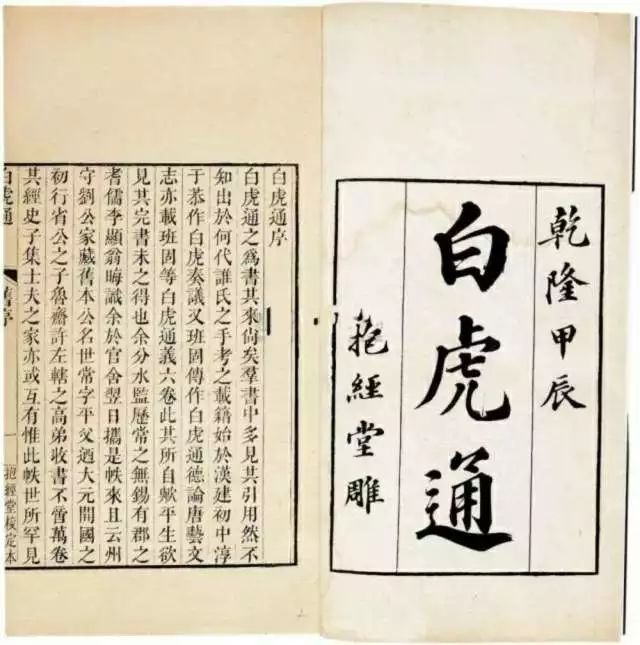 乾隆甲辰
白虎通
抱經堂雕
白虎通序
白虎通之爲書其來尚矣羣書中多見其引用然不
知出於何代誰氏之手考之載籍始於漢建初中淳
于恭作白虎奏議又班固傳作白虎通德論唐藝文
志亦載班固等白虎通義六卷此其所自歟平生欲
見其完書未之得也余分水監歷常之無錫有郡之
耆儒李顯翁晦識余於官舍翌日攜是帙來且云州
守劉公家藏舊本公名世常字平父迺大元開國之
初行省公之子魯齋許左轄之高弟收書不啻萬卷
其經史子集士夫之家亦或互有惟此帙世所罕見
白虎通 舊序 一 抱經堂校定本